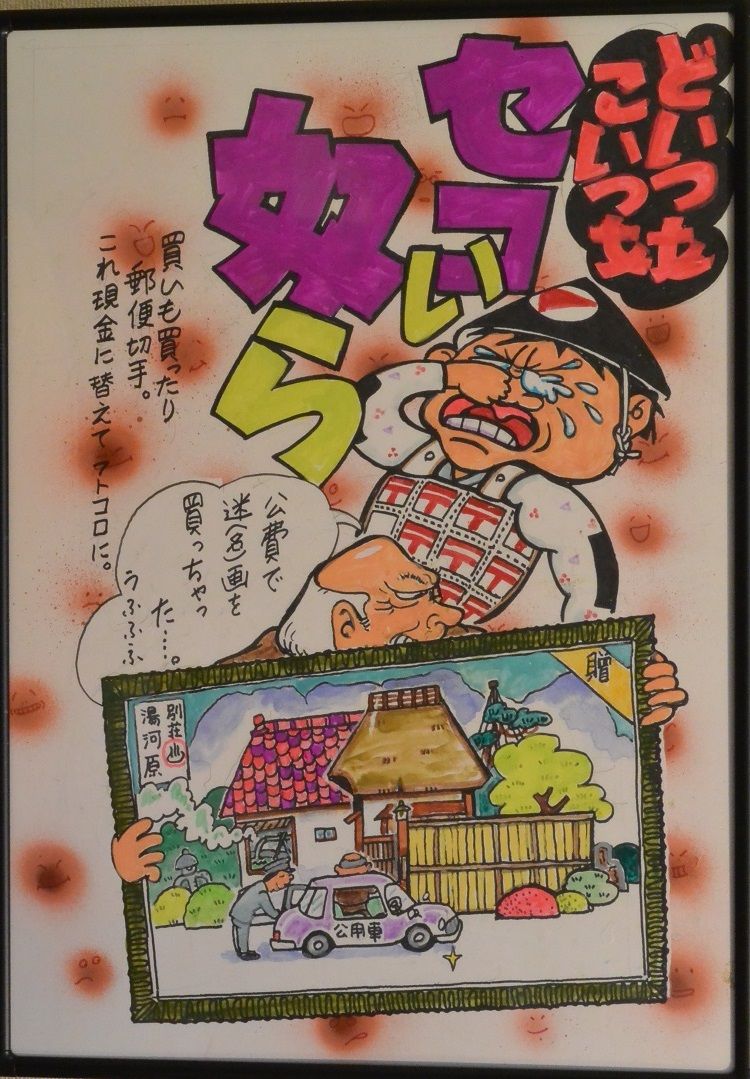 どいつも
こいつも
セコい
奴ら
買いも買ったり
郵便切手。
これ現金に替えてフトコロに。
公費で
迷(名)画を
買っちゃっ
た……。
うふふふ
贈
別荘♨
湯河原
公用車